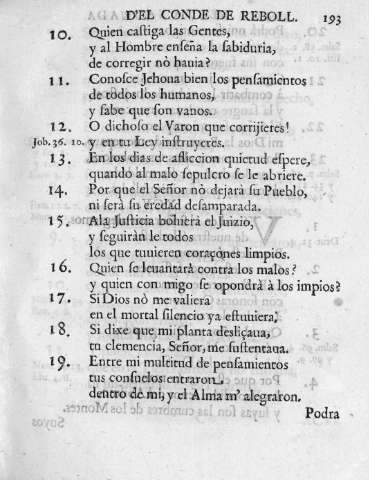 D'EL CONDE DE REBOLL. 193
10. Quien castiga las Gentes,
y al Hombre enseña la sabiduria,
de corregir nò hauia?
11. Conosce Jehoua bien los pensamientos
de todos los humanos,
y sabe que son vanos.
12. O dichoso el Varon que corrijieres!
Job. 36. 10. y en tu Ley instruyeres.
13. En los dias de afliccion quietud espere,
quando al malo sepulcro se le abriere.
14. Por que el Señor nò dejarà su Pueblo,
ni serà su eredad desamparada.
15. Ala Justicia boluerà el Juizio,
y seguiràn le todos
los que tuuieren coraçones limpios.
16. Quien se leuantarà contra los malos?
y quien con migo se opondrà à los impios?
17. Si Dios nò me valiera
en el mortal silencio ya estuuiera.
18. Si dixe que mi planta desliçaua,
tu clemencia, Señor, me sustentaua.
19. Entre mi multitud de pensamientos
tus consuelos entraron
dentro de mi, y el Alma m' alegraron.
Podra